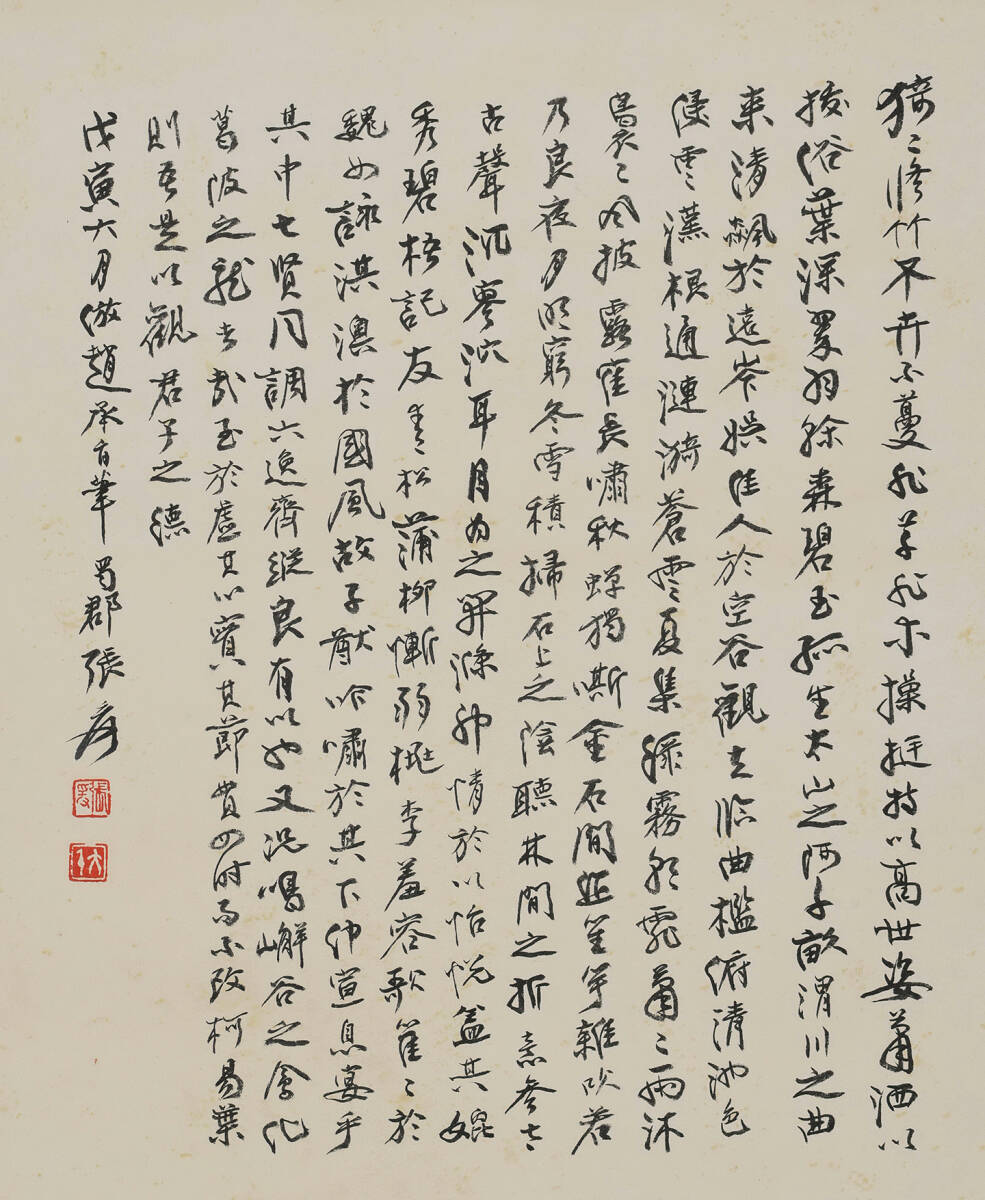 猗〻修竹不卉不蔓非草非木操挺特以高世姿蕭洒以
拔俗葉深翠羽幹森碧玉孤生太山之阿千畝渭川之曲
来清飆於遠岑娛佳人於空谷觀夫臨曲檻俯清池色
侵雲漢根通漣漪蒼雲夏集綠霧朝霏蕭〻雨沐
裊〻風披露隺長嘯秋蟬獨嘶金石間起笙竽雜吹若
乃良夜月明窮冬雪積掃石上之陰聽林間之折意參太
古聲沉寥泬耳目為之開滌神情於以怡悅盖其媲
秀碧梧託友青松蒲柳慚弱桃李羞容歌籊〻於
魏女詠淇澳於國風故子猷吟嘯於其下仲宣息宴乎
其中七賢同調六逸齊縱良有以也又況鳴嶰谷之禽化
葛陂之龍者哉至於虛其心實其節貫四時而不改柯易葉
則吾是以觀君子之德
戊寅六月倣趙承旨筆蜀郡張爰
張爰
大千